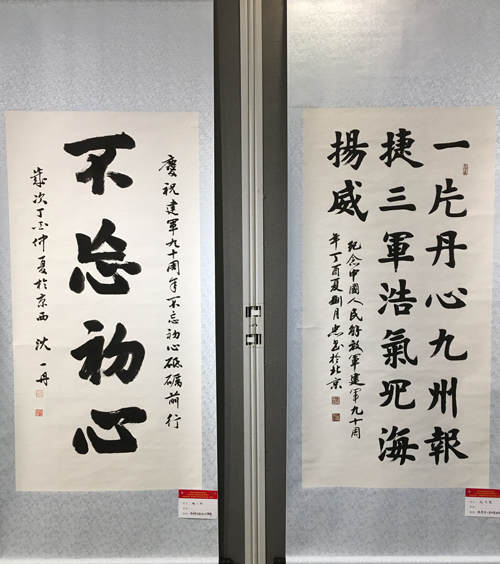 慶祝建軍九十周年不忘初心砥砺前行
不忘初心
歲次丁酉仲夏於京西 沈一丹
一片丹心九州報
捷三軍浩氣四海
揚威
紀念中國人民解放軍建軍九十周
年丁酉夏月忠書於北京